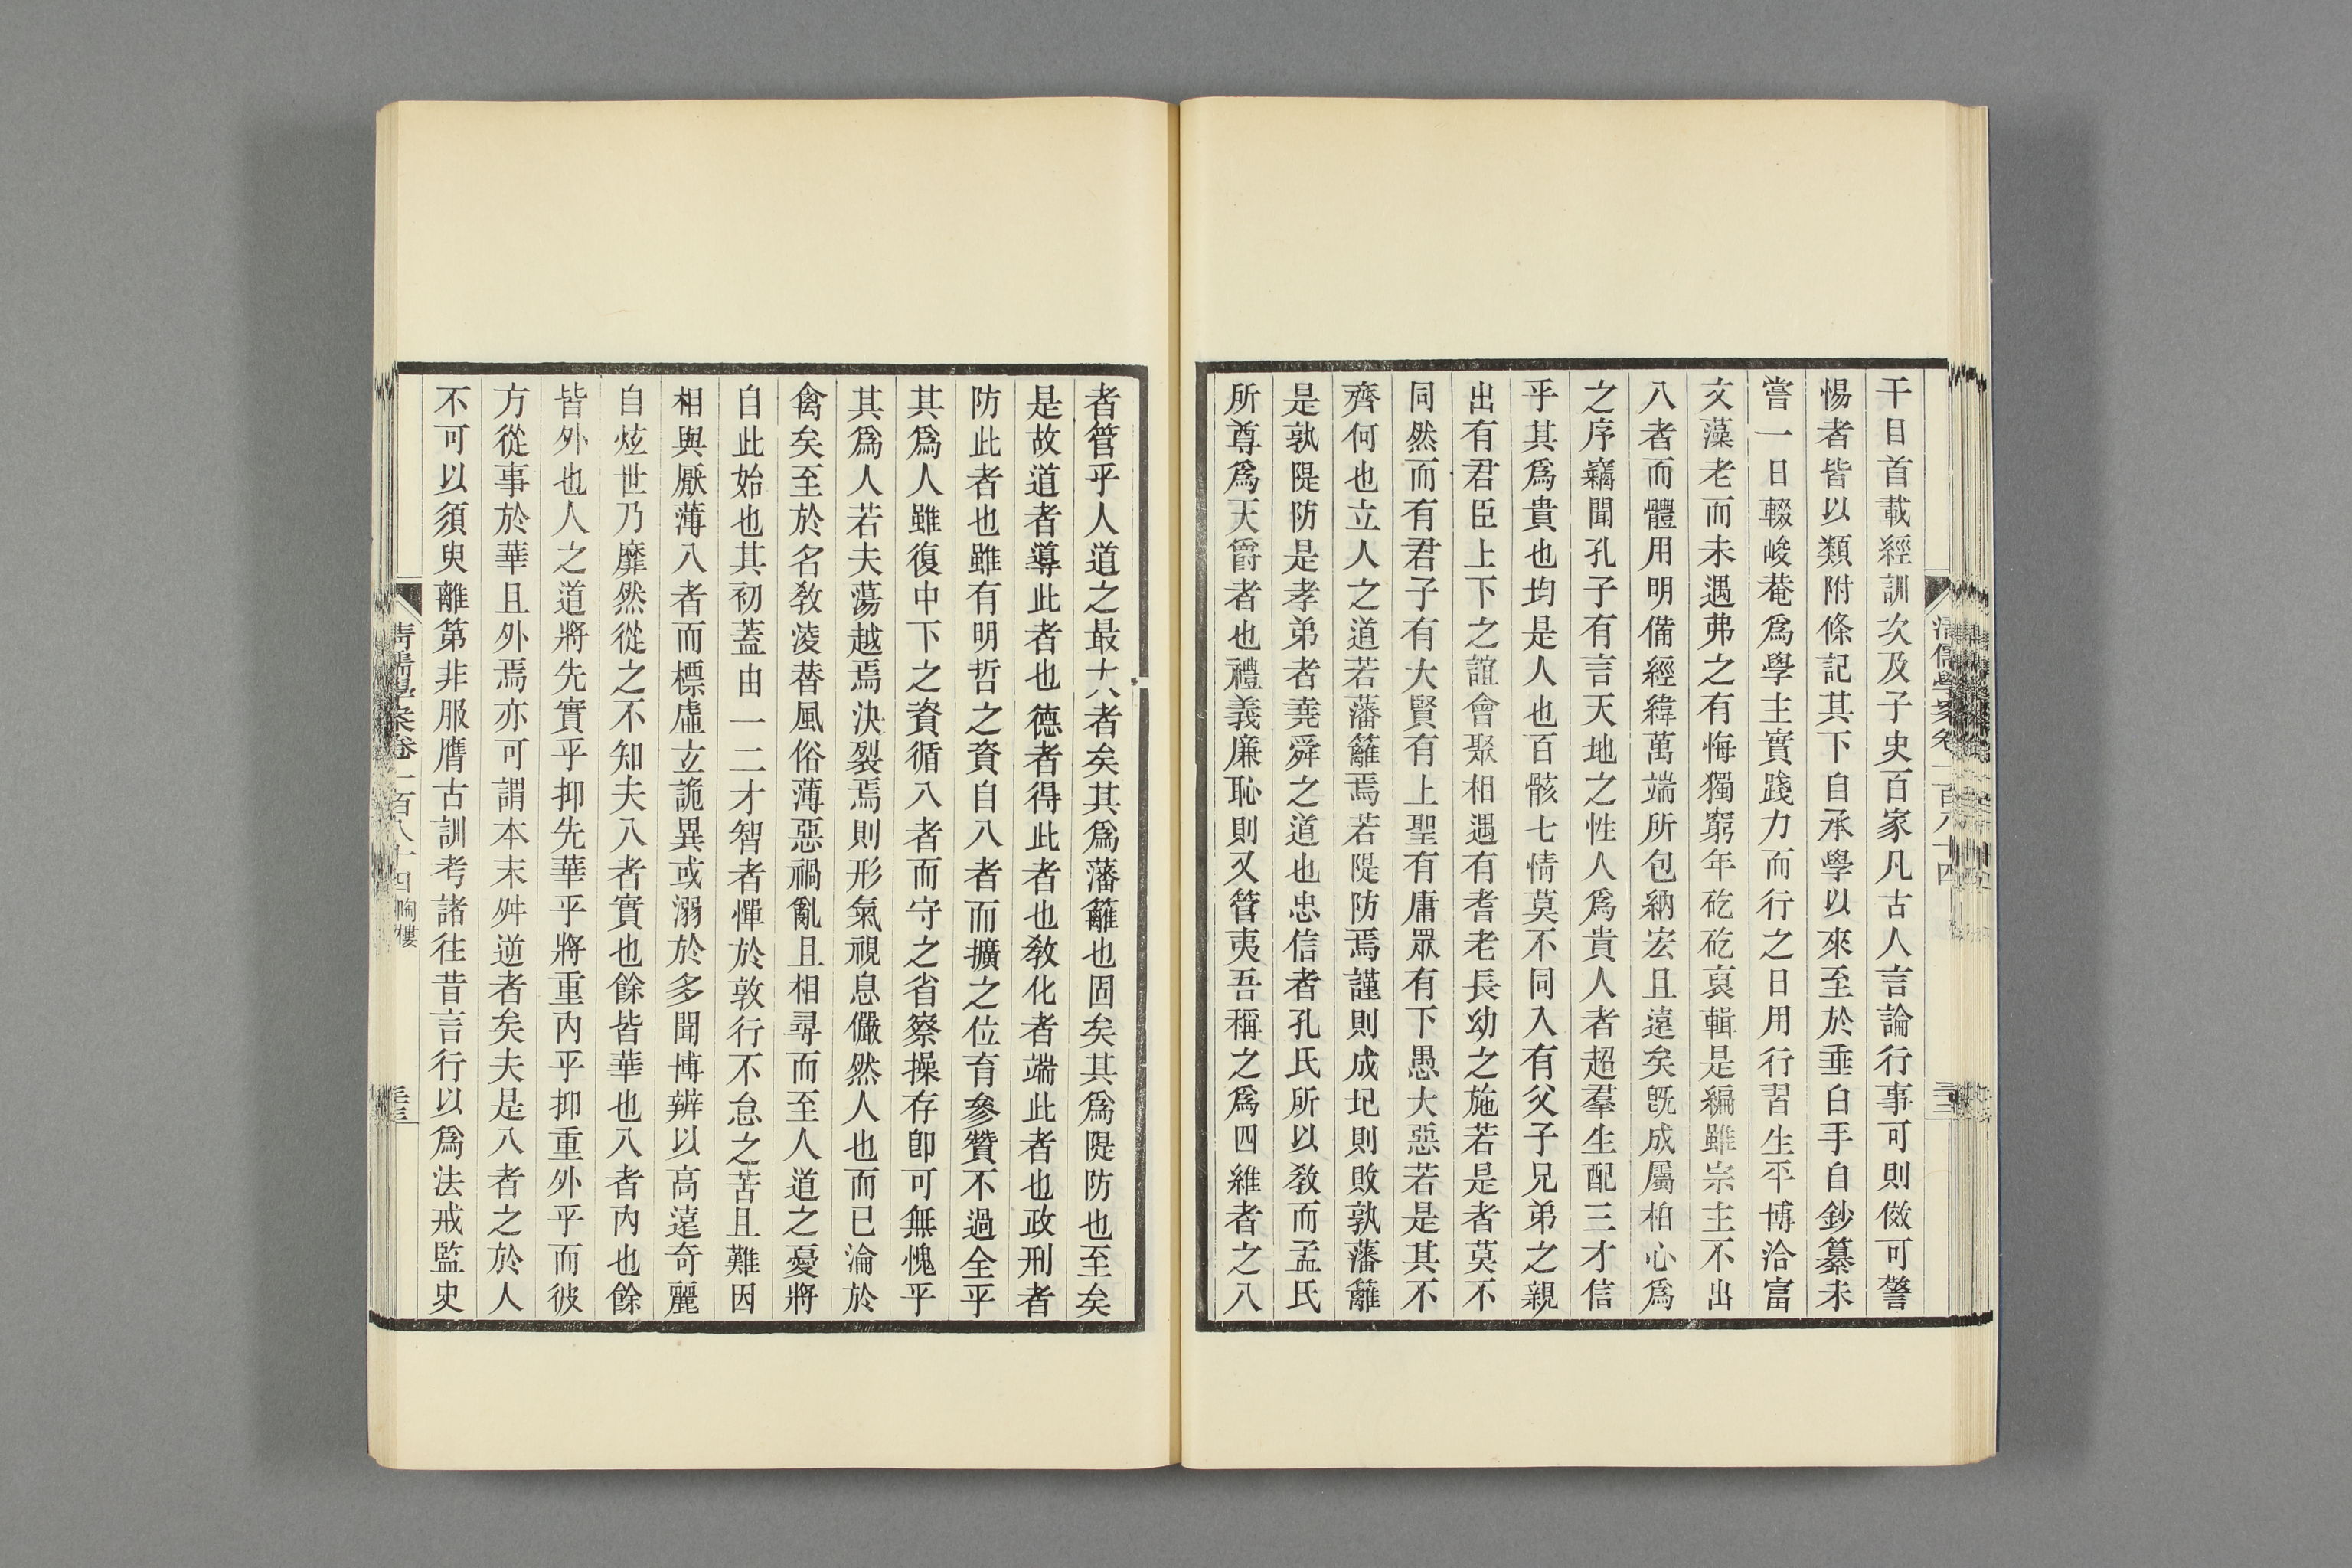 干目首載經訓次及子史百家凡古人言論行事可則儆可警
惕者皆以類附條記其下自承學以來至於垂白手自鈔纂未
嘗一日輟峻菴爲學主實踐力而行之日用行習生平博洽富
文藻老而未遇弗之有悔獨窮年矻矻裒輯是編雖宗主不出
八者而體用明備經緯萬端所包納宏且遠矣旣成屬柏心爲
之序竊聞孔子有言天地之性人爲貴人者超羣生配三才信
乎其爲貴也均是人也百骸七情莫不同入有父子兄弟之親
出有君臣上下之誼會聚相遇有耆老長幼之施若是者莫不
同然而有君子有大賢有上聖有庸眾有下愚大惡若是其不
齊何也立人之道若藩籬焉若隄防焉謹則成圮則敗孰藩籬
是孰隄防是孝弟者堯舜之道也忠信者孔氏所以敎而孟氏
所尊爲天爵者也禮義廉恥則又管夷吾稱之爲四維者之八
者管乎人道之最大八者矣其爲藩籬也固矣其爲隄防也至矣
是故道者導此者也德者得此者也敎化者端此者也政刑者
防此者也雖有明哲之資自八者而擴之位育參贊不過全乎
其爲人雖復中下之資循八者而守之省察操存卽可無愧乎
其爲人若夫蕩越焉決裂焉則形氣視息儼然人也而已淪於
禽矣至於名敎淩替風俗薄惡禍亂且相尋而至人道之憂將
自此始也其初蓋由一二才智者憚於敦行不怠之苦且難因
相與厭薄八者而標虛立詭異或溺於多聞博辨以高遠奇麗
自炫世乃靡然從之不知夫八者實也餘皆華也八者內也餘
皆外也人之道將先實乎抑先華乎將重內乎抑重外乎而彼
方從事於華且外焉亦可謂本末舛逆者矣夫是八者之於人
不可以須臾離第非服膺古訓考諸往昔言行以爲法戒監史
清儒學案卷一百八十四 陶樓